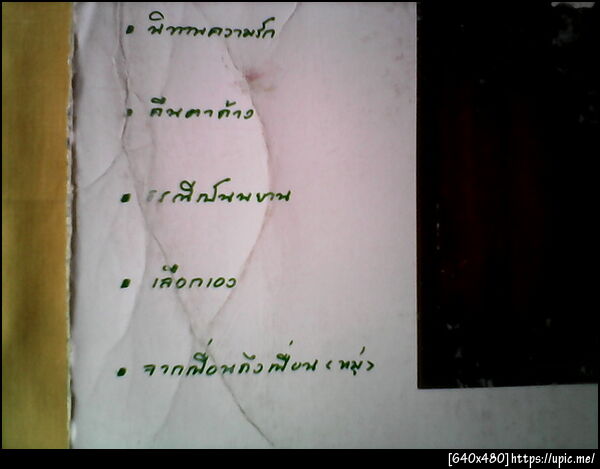 • นิทานความรัก
• ลืมตาค้าง
• ธรณีเป็นพยาน
• เลือกเอง
• จากเพื่อนถึงเพื่อน (หมู่)
[640x480]https://upic.me/